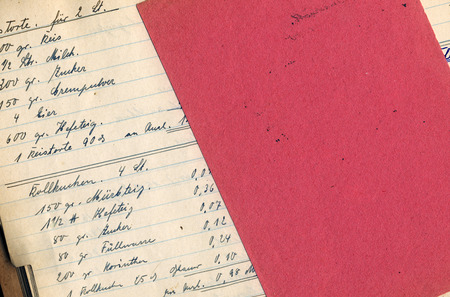 storte. für 2 St.
00 gr. Reis
1/2 Ltr. Milch.
200 gr. Zucker
150 gr. Crempulver
4 Eier
600 gr. Hefeteig.
1 Reistorte 90 S
Rollkuchen. 4 St.
150 gr. Mürbteig.
1 1/2 ℔ Hefeteig 0,36
80 gr. Zucker 0,07
80 gr Füllmasse 0,12
200 gr Korinthen 0,24
1 Rollkuchen 25 S 0,10
0,98 M